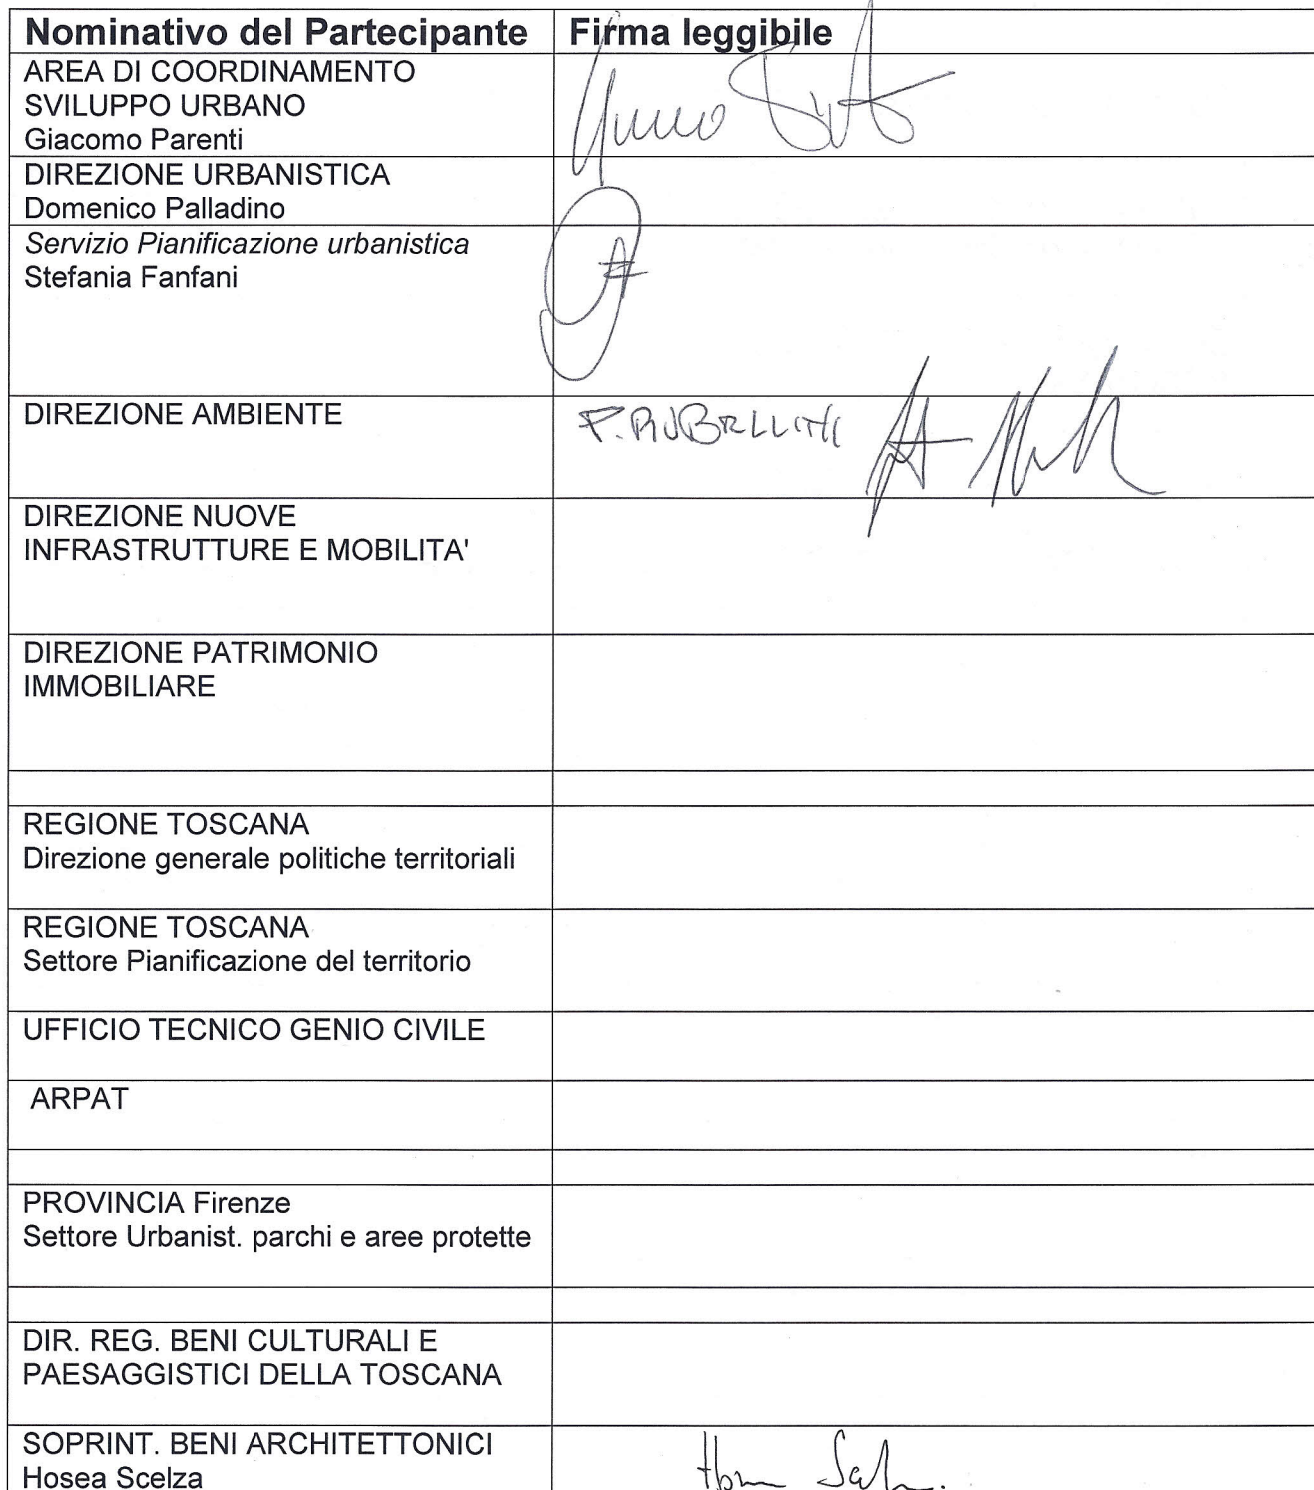 Nominativo del Partecipante
Firma leggibile
AREA DI COORDINAMENTO
SVILUPPO URBANO
Giacomo Parenti
DIREZIONE URBANISTICA
Domenico Palladino
Servizio Pianificazione urbanistica
Stefania Fanfani
DIREZIONE AMBIENTE
DIREZIONE NUOVE
INFRASTRUTTURE E MOBILITA'
DIREZIONE PATRIMONIO
IMMOBILIARE
REGIONE TOSCANA
Direzione generale politiche territoriali
REGIONE TOSCANA
Settore Pianificazione del territorio
UFFICIO TECNICO GENIO CIVILE
ARPAT
PROVINCIA Firenze
Settore Urbanist. parchi e aree protette
DIR. REG. BENI CULTURALI E
PAESAGGISTICI DELLA TOSCANA
SOPRINT. BENI ARCHITETTONICI
Hosea Scelza